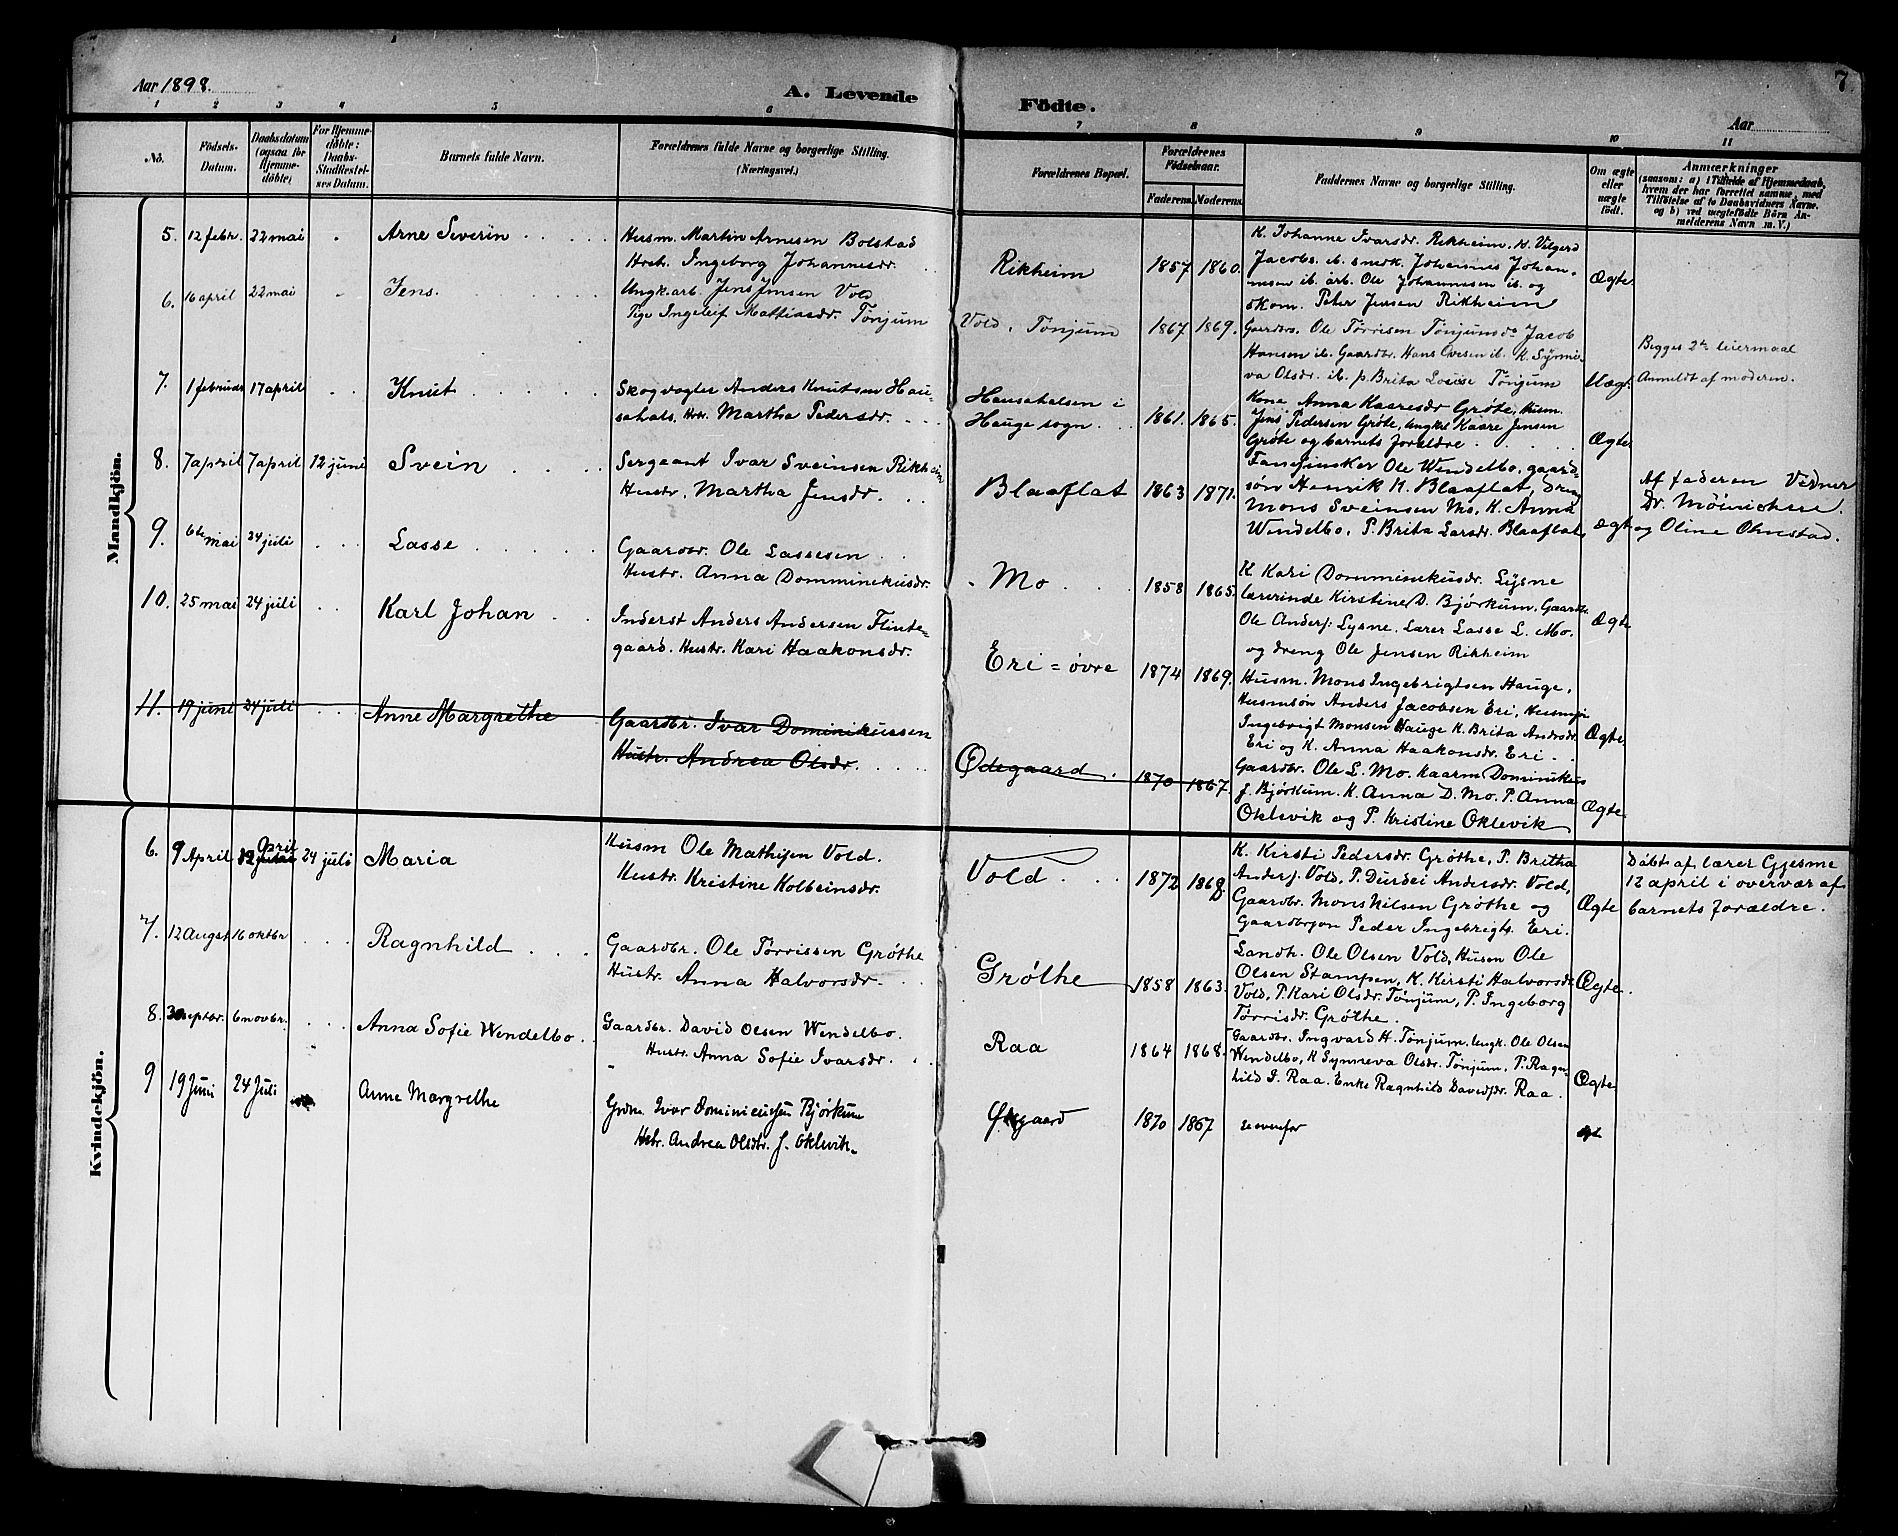 7
Aar 1898.
A. Levende Födte.
Aar
1 2 3 4 5 6 7 8 9 10 11
No.
Födsels-
Datum.
Daabsdatum
(ogsaa for
Hjemme-
döbte)
For Hjemme-
döbte:
Daabs-
Stadfæstel-
ses Datum.
Barnets fulde Navn.
Forældrenes fulde Navne og borgerlige Stilling.
(Næringsvei.)
Forældrenes Bopæl.
Forældrenes
Födselsaar.
Faderens. Moderens.
Faddernes Navne og borgerlige Stilling.
Om ægte
eller
uægte
födt.
Anmærkninger
(saasom: a) i Tilfælde af Hjemmedaab,
hvem der har forrettet samme, med
Tilföielse af to Daabsvidners Navne.
og b) ved uægtefödte Börn An-
melderens Navn m. V.)
Mandkjön.
5. 12 febr. 22 mai Arne Severin
Husm. Martin Arnesen Bolstad
Hstr. Ingeborg Johannesdr.
Rikheim 1857 1860.
K. Johanne Ivarsdr. Rikheim, K. Vilgerd
Jacobs. ib. smedk. Johannes Johan-
nesen ib. arb. Ole Johannesen ib. og
skom. Peter Jensen Rikheim
Ægte
6. 16 april 22 mai Jens.
Ungk. arb. Jens Jensen Vold
Pige Ingeleif Mathiasdr. Tönjum
Vold, Tönjum 1867 1869.
Gaardbr. Ole Tørrisen Tönjum do Jacob
Hansen ib. Gaardbr. Hans Ovesen ib. K. Synni-
va Olsdr. ib. p. Brita Louise Tönjum
Uægt.
Begges 2de leiermaal
Anmeldt af moderen.
7. 1 februar 17 april Knut
Skogvogter Anders Knutsen Hau-
sahals. Hstr. Martha Pedersdr.
Hausahalsen i
Hauge sogn. 1861. 1865.
Kone Anna Kaaresdr Grøte, Husm.
Jens Pedersen Grøte, ungkel Kaare Jensen
Grøte og barnets forældre.
Ægte
8. 7 april 7 april 12 juni Svein
Sergeant Ivar Sveinsen Rikheim
Hustr. Martha Jensdr.
Blaaflat 1863 1871.
Fanejunker Ole Wendelbo, gaard-
søn Henrik H. Blaaflat, dreng
Mons Sveinsen Mo, K. Anna
Wendelbo, P. Brita Larsdr. Blaaflat
ægt
Af faderen Vidner
Dr. Möinichen
og Oline Ohnstad.
9. 6te mai 24 juli Lasse
Gaardbr. Ole Lassesen
Hustr. Anna Domminikusdr.
Mo 1858 1865.
K. Kari Domminikusdr. Lysne
lærerinde Kirstine D. Bjørkum, Gaardbr.
Ole Anders: Lysne. Lærer Lasse L. Mo.
og dreng Ole Jensen Rikheim
Ægte
10. 25 mai 24 juli Karl Johan
Inderst Anders Andersen Flinte-
gaard. Hustr. Kari Haakonsdr.
Eri = øvre 1874 1869.
Husm. Mons Ingebrigtsen Hauge,
Husmsön Anders Jacobsen Eri, Husmsøn
Ingebrigt Monsen Hauge K. Brita Andrsdr.
Eri og K. Anna Haakonsdr. Eri
Ægte
11. 19 juni 24 juli Anne Margrethe
Gaardbr. Ivar Dominikussen
Hustr. Andrea Olsdr.
Ødegaard. 1870 1867.
Gaardbr. Ole L. Mo. Kaarm Dominikus
J. Bjørkum. K. Anna D. Mo. P. Anna
Oklevik og P. Kristine Oklevik
Ægte
Kvindekjön.
6. 9 April 12 April 24 juli Maria
Husm Ole Mathisen Vold.
Hustr. Kristine Kolbeinsdr.
Vold 1872 1868.
K. Kirsti Pedersdr. Grøthe, P. Britha
Anders. Vold, P. Durdei Andersdr. Vold,
Gaardbr. Mons Nilsen Grøthe og
Gaardbrsøn Peder Ingebrigts. Eri.
Ægte
Döbt af lærer Gjesme
12 april i overvær af
barnets forældre.
7. 12 Augst 16 oktbr Ragnhild
Gaardbr. Ole Tørrissen Grøthe
Hustr. Anna Halvorsdr.
Grøthe 1858 1863.
Landh. Ole Olsen Vold, Husm Ole
Olsen Stampen, K. Kirsti Halvorsdr.
Vold, P. Kari Olsdr. Tönjum, P. Ingeborg
Tørrisdr. Grøthe.
Ægte.
8. 30 septbr. 6 novbr. Anna Sofie Wendelbo.
Gaardbr. David Olsen Wendelbo.
Hustr. Anna Sofie Ivarsdr.
Raa 1864 1868.
Gaardbr. Ingvard H. Tönjum. Ungk. Ole Olsen
Wendelbo, K Synneva Olsdr. Tönjum, P. Ragn-
hild I. Raa. Enke Ragnhild Davidsdr. Raa.
Ægte
9 19 Juni 24 Juli Anne Margrethe
Grdm. Ivar Dominicussen Bjørkum
Hstr. Andrea Olsdtr. f. Oklevik.
1870 1867 se ovenfor
ægt